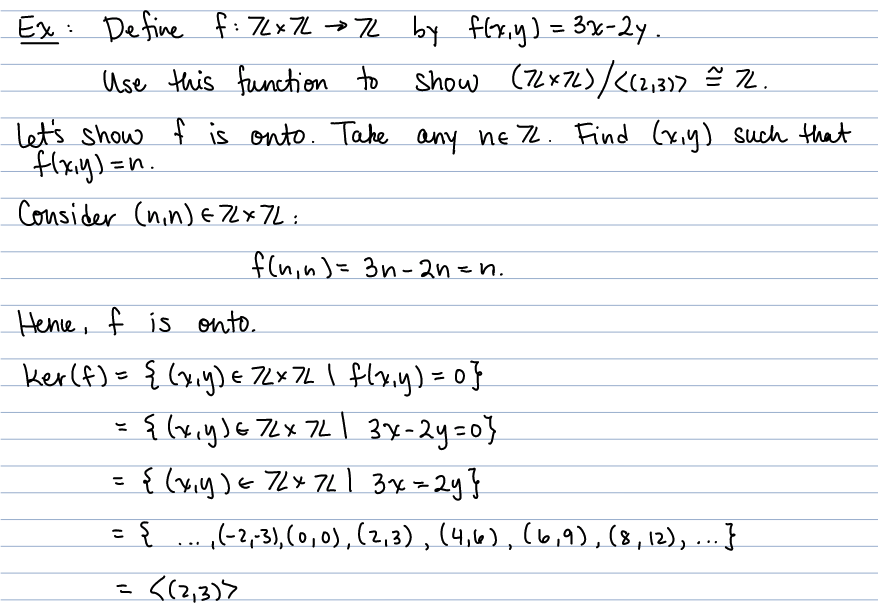 Ex: Define f: ℤ×ℤ → ℤ by f(x,y) = 3x-2y.
Use this function to show (ℤ×ℤ)/<(2,3)> ≅ ℤ.
Let's show f is onto. Take any n∈ℤ. Find (x,y) such that
f(x,y)=n.
Consider (n,n) ∈ ℤ×ℤ:
f(n,n) = 3n-2n = n.
Hence, f is onto.
Ker(f) = { (x,y) ∈ ℤ×ℤ | f(x,y) = 0}
= { (x,y) ∈ ℤ×ℤ | 3x-2y=0}
= { (x,y) ∈ ℤ×ℤ | 3x=2y}
= { ...,(-2,-3),(0,0),(2,3),(4,6),(6,9),(8,12),...}
= <(2,3)>